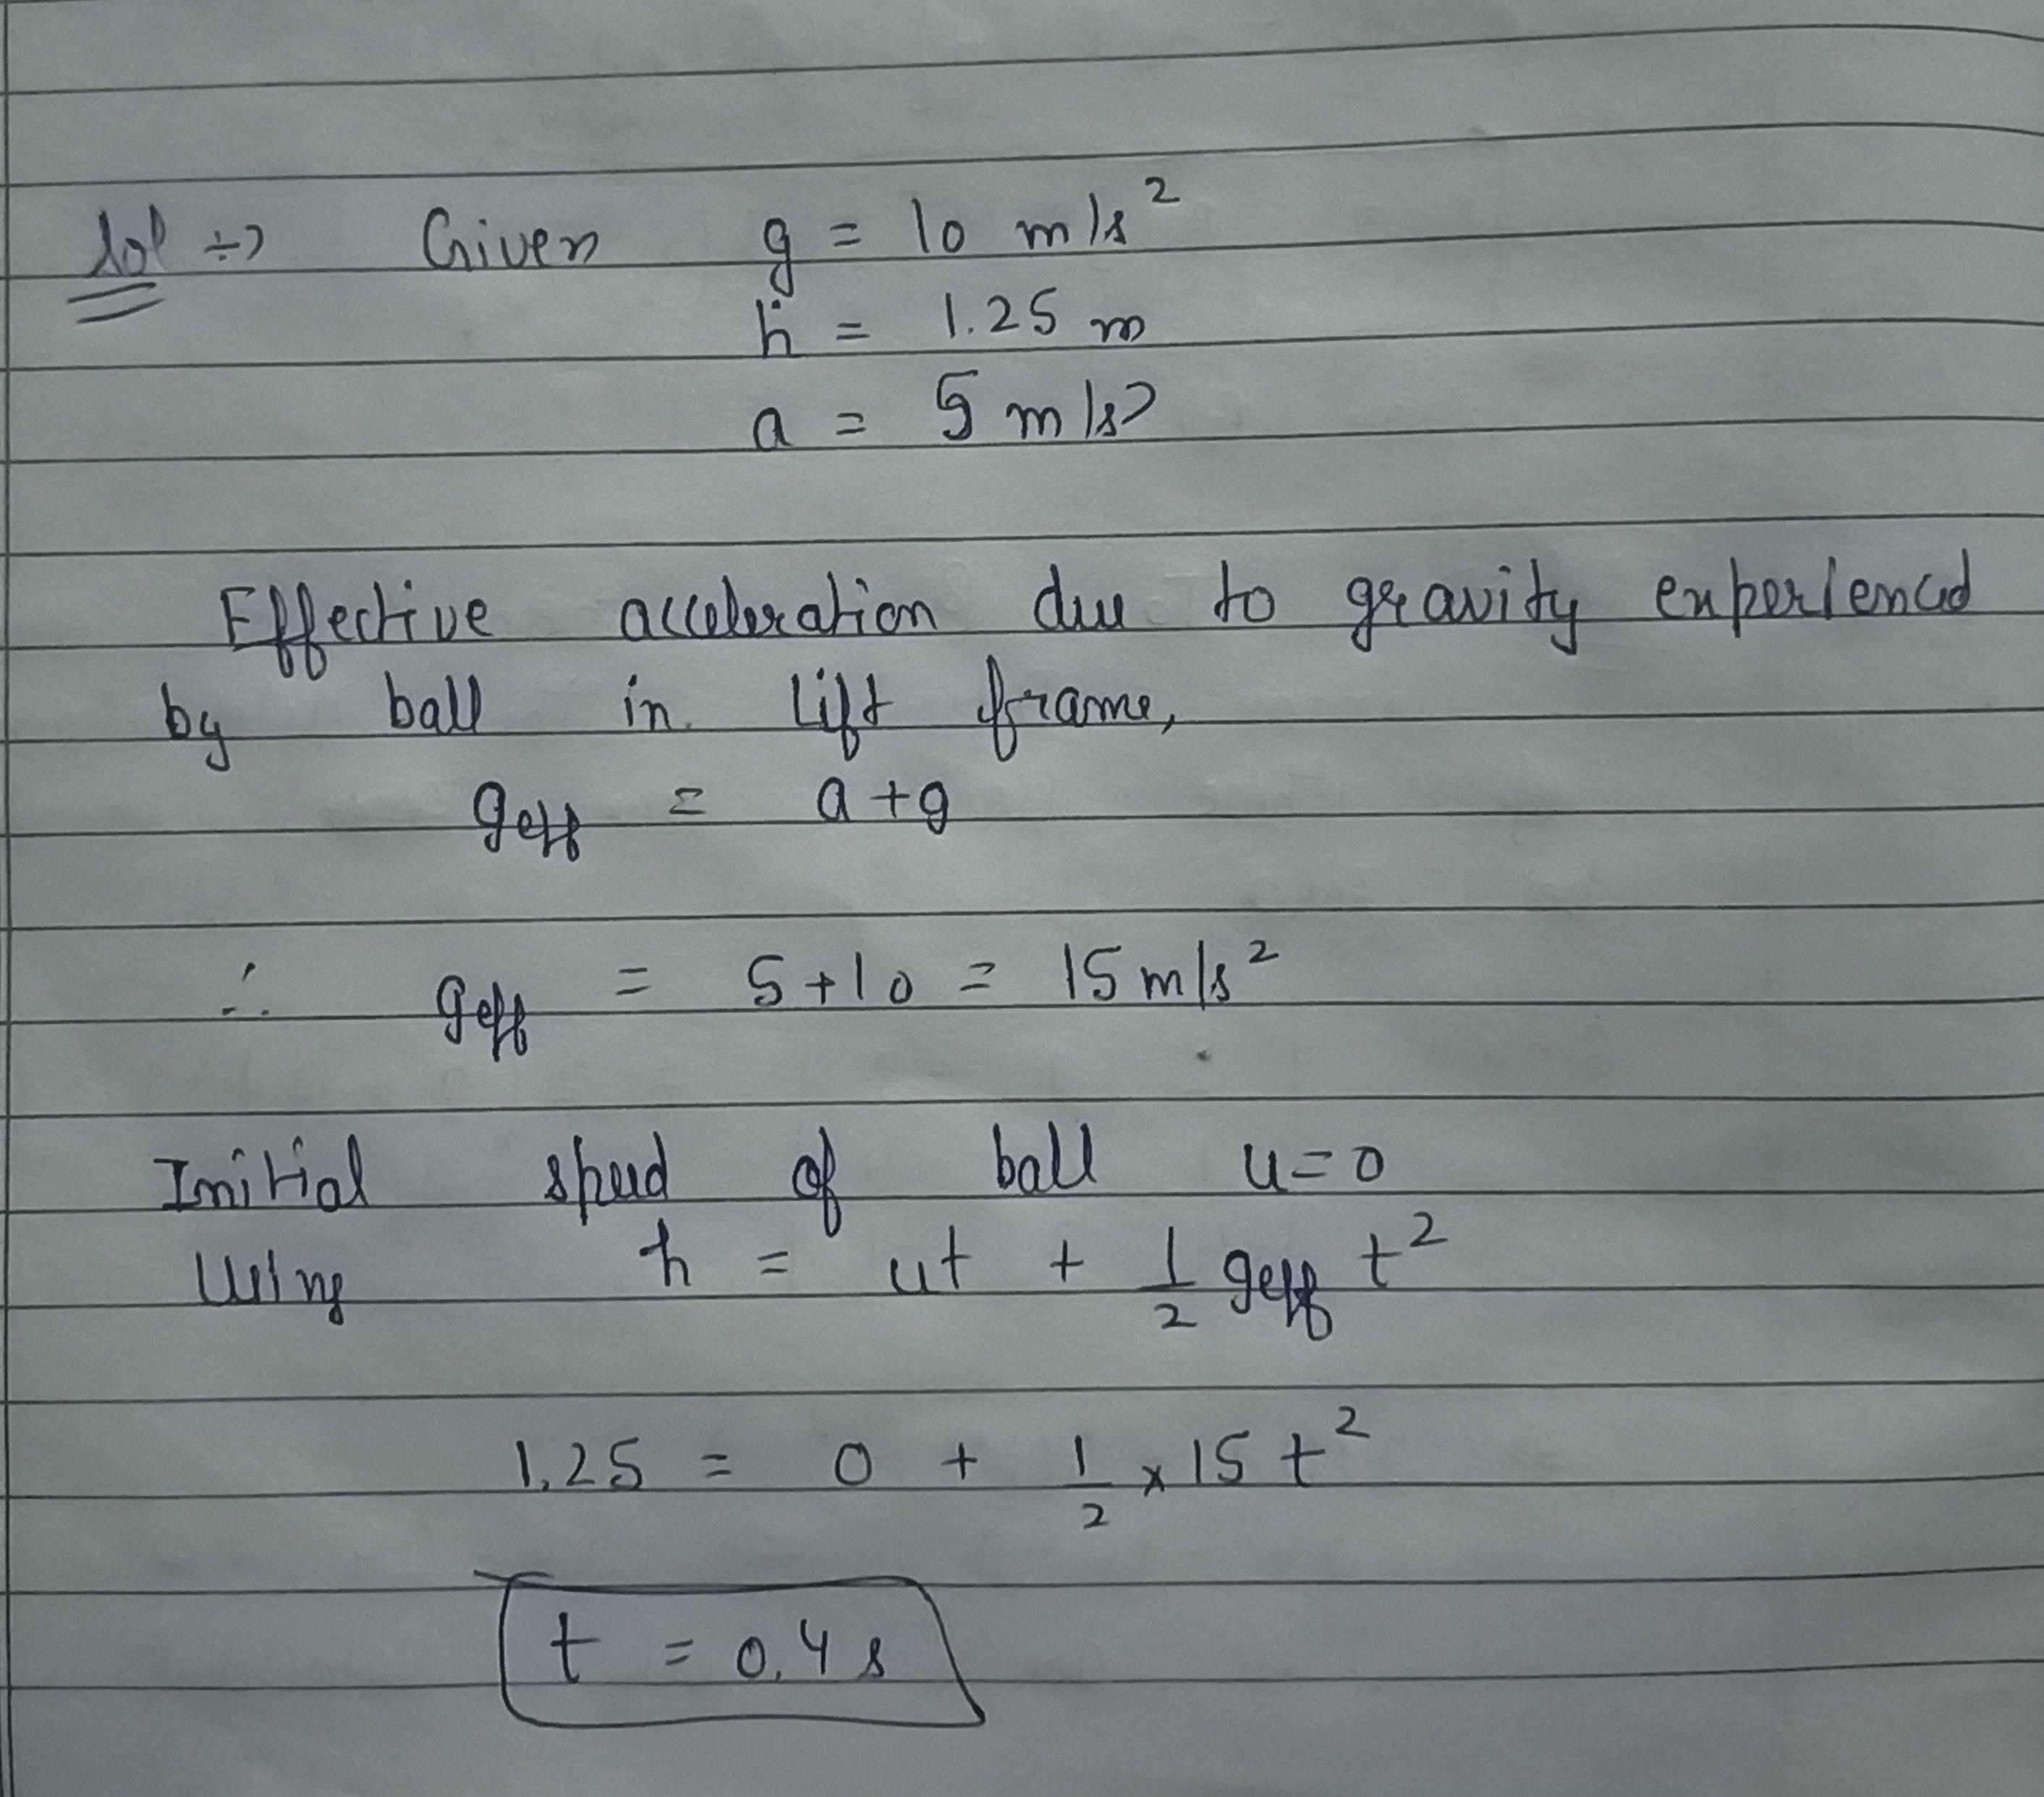 Sol ÷> Given g = 10 m/s²
h = 1.25 m
a = 5 m/s²
Effective acceleration due to gravity experienced
by ball in lift frame,
geff = a+g
∴ geff = 5+10 = 15 m/s²
Initial speed of ball u=0
Using h = ut + 1/2 geff t²
1.25 = 0 + 1/2 × 15 t²
t = 0.4 s